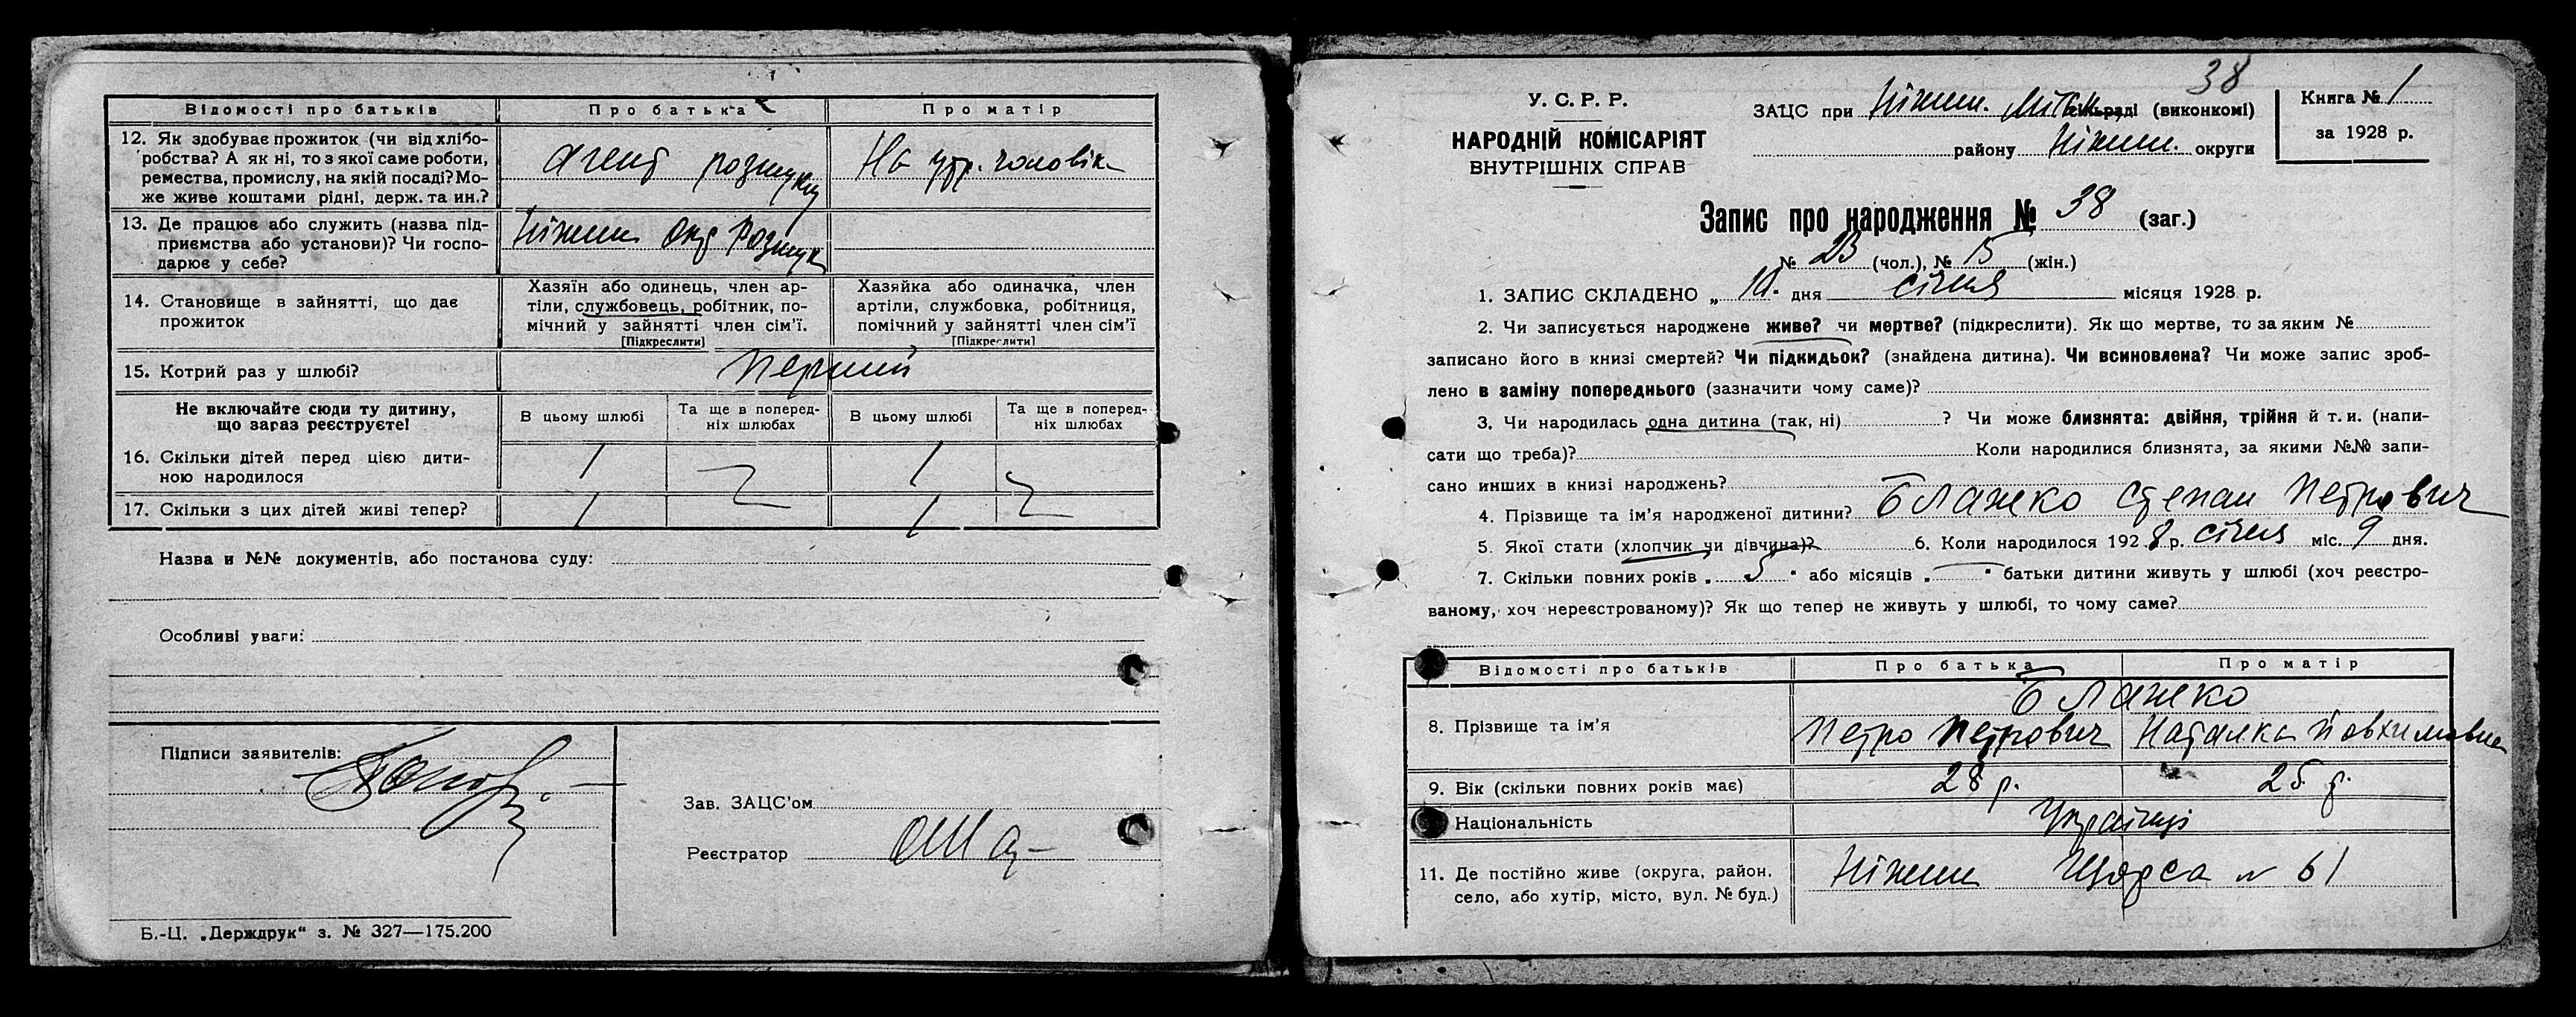 Відомості про батьків Про батька Про матір
12. Як здобуває прожиток (чи від хлібо-
робства? А як ні, то з якої саме роботи,
ремества, промислу, на якій посаді? Мо-
же живе коштами рідні, держ. та ин.?
Агент розшуку На утр. чоловіка
13. Де працює або служить (назва під-
приємства або установи)? Чи госпо-
дарює у себе?
Ніжин Окр Розшук
14. Становище в зайнятті, що дає
прожиток
Хазяїн або одинець, член ар-
тіли, службовець, робітник, по-
мічний у зайнятті член сім'ї.
[Підкреслити]
Хазяйка або одиначка, член
артіли, службовка, робітниця,
помічний у зайнятті член сім'ї
[Підкреслити]
15. Котрий раз у шлюбі? Перший
Не включайте сюди ту дитину,
що зараз реєструєте!
В цьому шлюбі
Та ще в поперед-
ніх шлюбах
В цьому шлюбі
Та ще в поперед-
ніх шлюбах
16. Скільки дітей перед цією дити-
ною народилося
1 1
17. Скільки з цих дітей живі тепер? 1 1
Назва и №№ документів, або постанова суду:
Особливі уваги:
Підписи заявителів:
Зав. ЗАЦС'ом
Реєстратор
Б.-Ц. „Держдрук" з. № 327—175.200
38
У. С. Р. Р.
НАРОДНІЙ КОМІСАРІЯТ
ВНУТРІШНІХ СПРАВ
ЗАЦС при Ніжин. Міськ сільраді (виконкомі)
району Ніжин. округи
Книга № 1
за 1928 р.
Запис про народження № 38 (заг.)
№ 23 (чол.), № 15 (жін.)
1. ЗАПИС СКЛАДЕНО „10" дня січня місяця 1928 р.
2. Чи записується народжене живе? чи мертве? (підкреслити). Як що мертве, то за яким №
записано його в книзі смертей? Чи підкидьок? (знайдена дитина). Чи всиновлена? Чи може запис зроб-
лено в заміну попереднього (зазначити чому саме)?
3. Чи народилась одна дитина (так, ні) ? Чи може близнята: двійня, трійня й т. и. (напи-
сати що треба)? Коли народилися близнята, за якими №№ запи-
сано инших в книзі народжень?
4. Прізвище та ім'я народженої дитини? Блажко Степан Петрович
5. Якої стати (хлопчик чи дівчина)? 6. Коли народилося 1928 р. січня міс. 9 дня.
7. Скільки повних років „5" або місяців „—" батьки дитини живуть у шлюбі (хоч реєстро-
ваному, хоч нереєстрованому)? Як що тепер не живуть у шлюбі, то чому саме?
Відомості про батьків Про батька Про матір
Блажко
8. Прізвище та ім'я Петро Петрович Наталка Йовхимовна
9. Вік (скільки повних років має) 28 р. 25 р.
Національність Українці
11. Де постійно живе (округа, район,
село, або хутір, місто, вул. № буд.)
Ніжин Щорса № 61